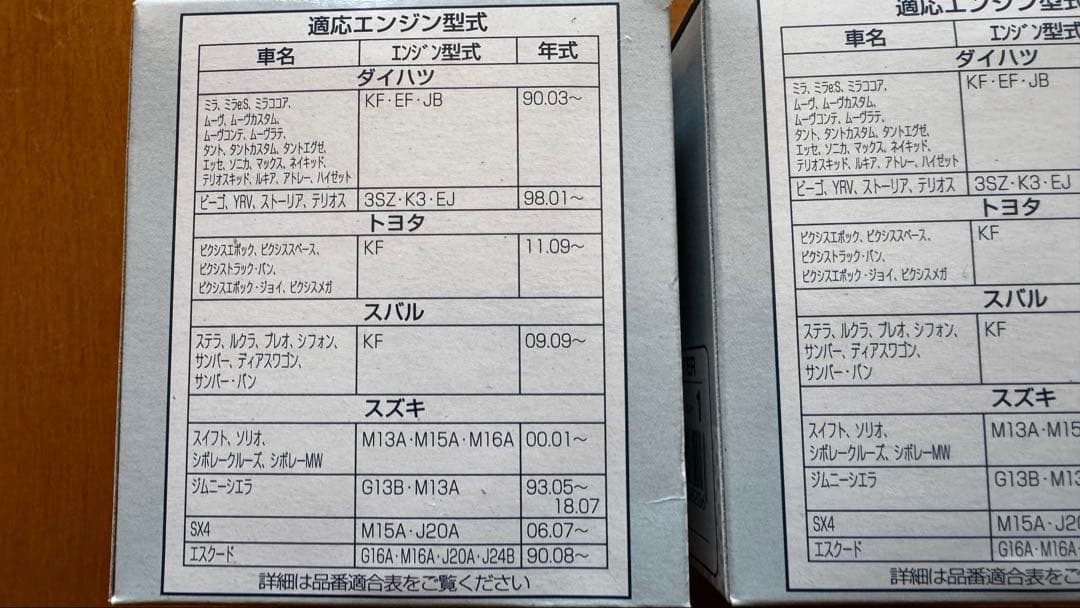 適応エンジン型式
車名 エンジン型式 年式
ダイハツ
ミラ、ミラe:S、ミラココア、 KF・EF・JB 90.03～
ムーヴ、ムーヴカスタム、
ムーヴコンテ、ムーヴラテ、
タント、タントカスタム、タントエグゼ、
エッセ、ソニカ、マックス、ネイキッド、
テリオスキッド、ルキア、アトレー、ハイゼット
ビーゴ、YRV、ストーリア、テリオス 3SZ・K3・EJ 98.01～
トヨタ
ピクシスエポック、ピクシススペース、 KF 11.09～
ピクシストラック・バン、
ピクシスエポック・ジョイ、ピクシスメガ
スバル
ステラ、ルクラ、プレオ、シフォン、 KF 09.09～
サンバー、ディアスワゴン、
サンバー・バン
スズキ
スイフト、ソリオ、 M13A・M15A・M16A 00.01～
シボレークルーズ、シボレーMW
ジムニーシエラ G13B・M13A 93.05～
18.07
SX4 M15A・J20A 06.07～
エスクード G16A・M16A・J20A・J24B 90.08～
詳細は品番適合表をご覧ください
適応エンジン型式
車名 エンジン型
ダイハツ
ミラ、ミラe:S、ミラココア、 KF・EF・JB
ムーヴ、ムーヴカスタム、
ムーヴコンテ、ムーヴラテ、
タント、タントカスタム、タントエグゼ、
エッセ、ソニカ、マックス、ネイキッド、
テリオスキッド、ルキア、アトレー、ハイゼット
ビーゴ、YRV、ストーリア、テリオス 3SZ・K3・EJ
トヨタ
ピクシスエポック、ピクシススペース、 KF
ピクシストラック・バン、
ピクシスエポック・ジョイ、ピクシスメガ
スバル
ステラ、ルクラ、プレオ、シフォン、 KF
サンバー、ディアスワゴン、
サンバー・バン
スズキ
スイフト、ソリオ、 M13A・M15
シボレークルーズ、シボレーMW
ジムニーシエラ G13B・M13
SX4 M15A・J20
エスクード G16A・M16A
詳細は品番適合表をご覧くださ